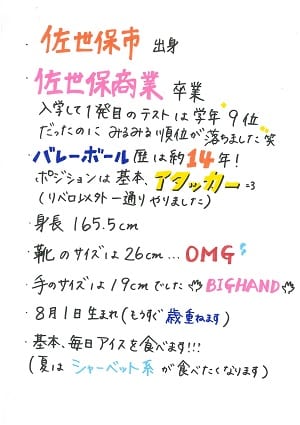 ・佐世保市 出身
・佐世保商業 卒業
入学して1発目のテストは学年"9位"
だったのにみるみる順位が落ちました笑
・バレーボール歴は約14年！
ポジションは基本、アタッカー=3
(リベロ以外一通りやりました)
・身長 165.5cm
・靴のサイズは26cm…OMG
・手のサイズは19cmでした BIGHAND
・8月1日生まれ(もうすぐ歳重ねます)
・基本、毎日アイスを食べます!!!
(夏はシャーベット系が食べたくなります)